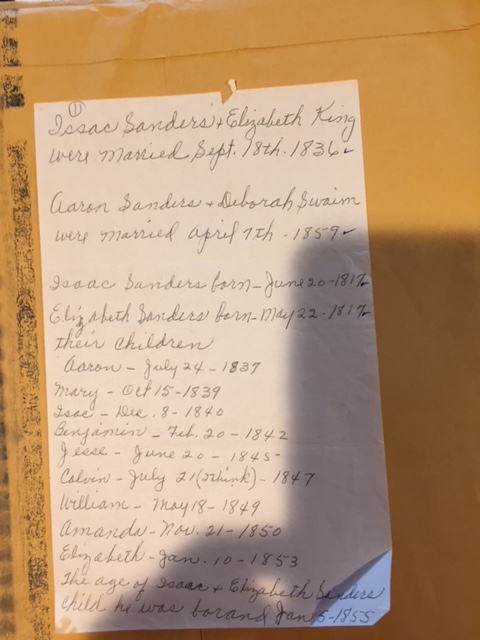 (1)
Issac Sanders + Elizabeth King
were married Sept. 18th. 1836
Aaron Sanders + Deborah Swaim
were married April 7th - 1859
Isaac Sanders born - June 20 - 1817
Elizabeth Sanders born - May 22 - 1817
their children
Aaron - July 24 - 1837
Mary - Oct 15 - 1839
Isac - Dec. 8 - 1840
Benjamin - Feb. 20 - 1842
Jesse - June 20 - 1845
Calvin - July 21 (I think) - 1847
William - May 18 - 1849
Amanda - Nov. 21 - 1850
Elizabeth - Jan. 10 - 1853
The age of Isaac + Elizabeth Sanders
child he was born and Jan 5 - 1855